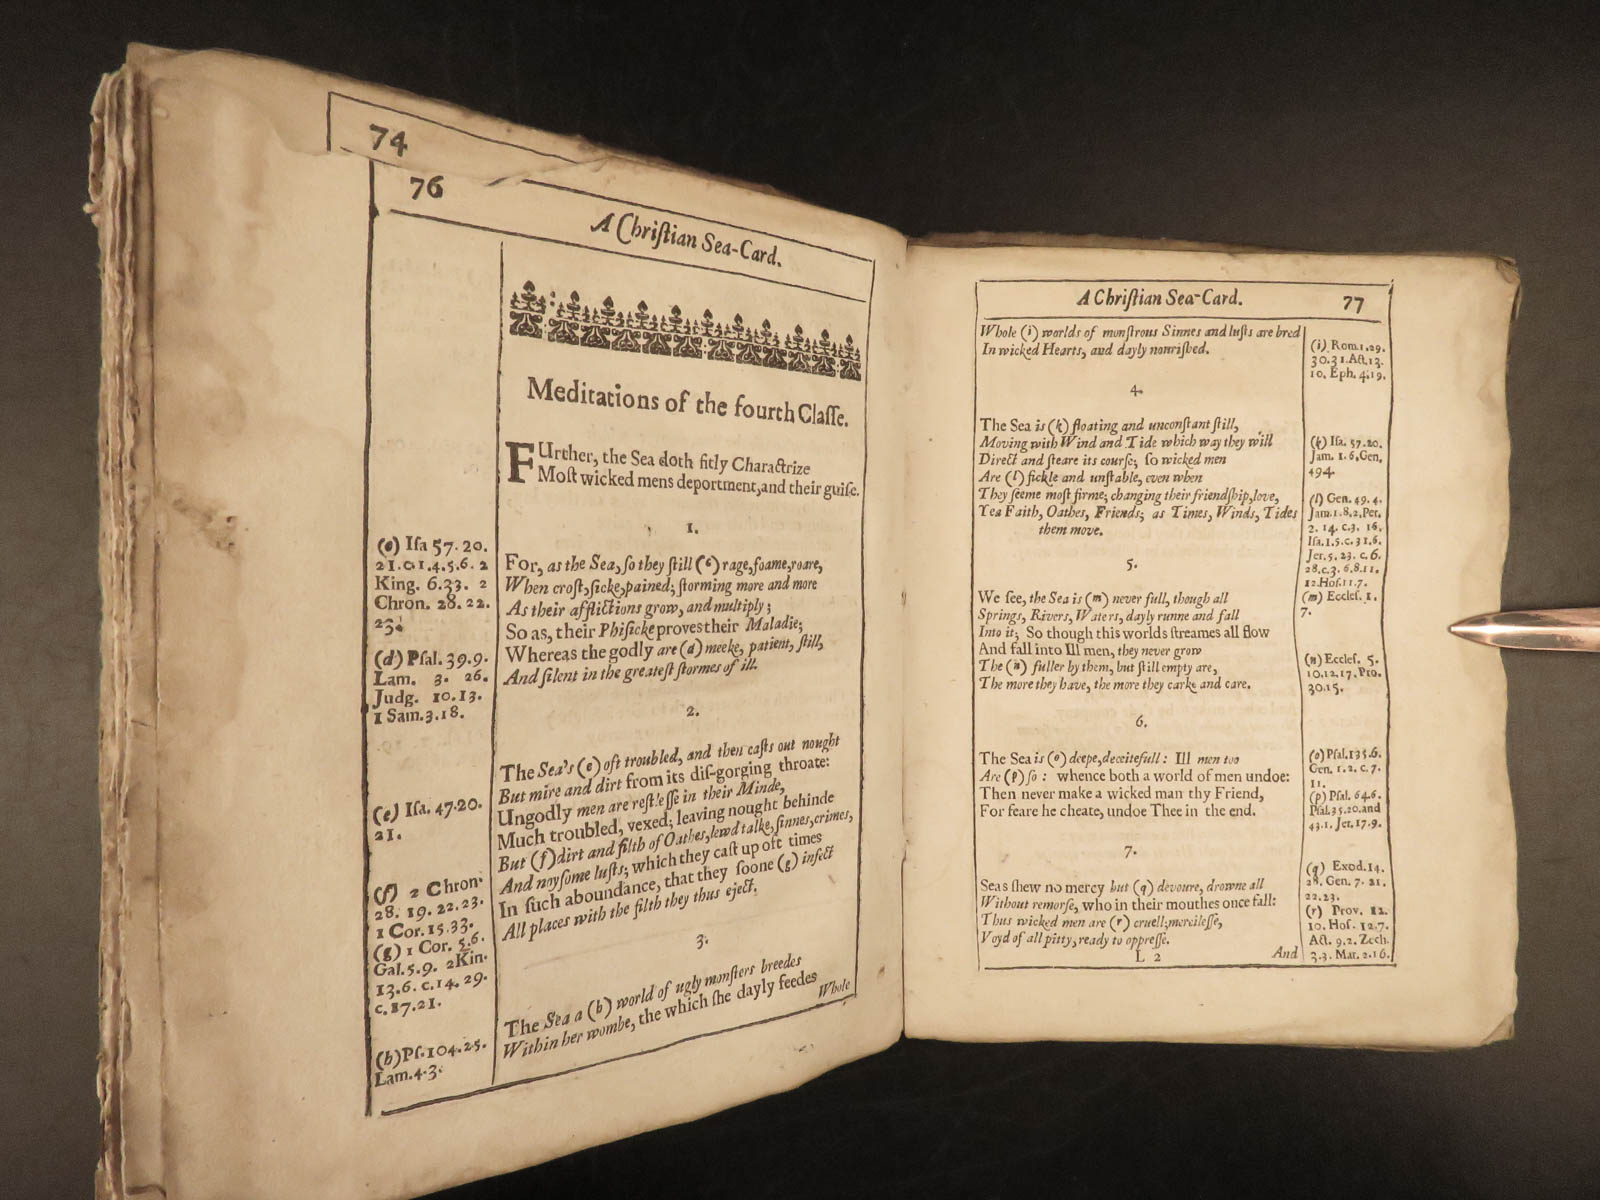 74
76
A Chriſtian Sea-Card.
Meditations of the fourth Claſſe.
FUrther, the Sea doth fitly Charactrize
Moſt wicked mens deportment, and their guiſe.
1.
For, as the Sea, ſo they ſtill (c) rage, foame, roare,
When croſt, ſicke, pained; ſtorming more and more
As their afflictions grow, and multiply;
So as, their Phiſicke proves their Maladie;
Whereas the godly are (d) meeke, patient, ſtill,
And ſilent in the greateſt ſtormes of ill.
2.
The Sea's (e) oft troubled, and then caſts out nought
But mire and dirt from its diſ-gorging throate:
Ungodly men are reſtleſſe in their Minde,
Much troubled, vexed; leaving nought behinde
But (f) dirt and filth of Oathes, lewd talke, ſinnes, crimes,
And noyſome luſts; which they caſt up oft times
In ſuch aboundance, that they ſoone (g) infect
All places with the filth they thus eject.
3.
The Sea a (h) world of ugly monſters breedes
Within her wombe, the which ſhe dayly feedes
Whole
(c) Iſa 57. 20.
21. c. 1. 4. 5. 6. 2
King. 6. 33. 2
Chron. 28. 22.
23.
(d) Pſal. 39. 9.
Lam. 3. 26.
Judg. 10. 13.
1 Sam. 3. 18.
(e) Iſa. 47. 20.
21.
(f) 2 Chron.
28. 19. 22. 23.
1 Cor. 15. 33.
(g) 1 Cor. 5. 6.
Gal. 5. 9. 2 Kin.
13. 6. c. 14. 29.
c. 17. 21.
(h) Pſ. 104. 25.
Lam. 4. 3.
A Chriſtian Sea-Card. 77
Whole (i) worlds of monſtrous Sinnes and luſts are bred
In wicked Hearts, and dayly nouriſhed.
4.
The Sea is (k) floating and unconſtant ſtill,
Moving with Wind and Tide which way they will
Direct and ſteare its courſe; ſo wicked men
Are (l) fickle and unſtable, even when
They ſeeme moſt firme; changing their friendſhip, love,
Yea Faith, Oathes, Friends; as Times, Winds, Tides
them move.
5.
We ſee, the Sea is (m) never full, though all
Springs, Rivers, Waters, dayly runne and fall
Into it; So though this worlds ſtreames all flow
And fall into Ill men, they never grow
The (n) fuller by them, but ſtill empty are,
The more they have, the more they carke and care.
6.
The Sea is (o) deepe, deceitefull: Ill men too
Are (p) ſo: whence both a world of men undoe:
Then never make a wicked man thy Friend,
For feare he cheate, undoe Thee in the end.
7.
Seas ſhew no mercy but (q) devoure, drowne all
Without remorſe, who in their mouthes once fall:
Thus wicked men are (r) cruell; mercileſſe,
Voyd of all pitty, ready to oppreſſe.
L 2 And
(i) Rom. 1. 29.
30. 31. Act. 13.
10. Eph. 4. 19.
(k) Iſa. 57. 20.
Jam. 1. 6. Gen.
49 4.
(l) Gen. 49. 4.
Jam. 1. 8. 2. Pet.
2. 14. c. 3. 16.
Iſa. 1. 5. c. 31. 6.
Jer. 5. 23. c. 6.
28. c. 3. 6. 8. 11.
12. Hoſ. 11. 7.
(m) Eccleſ. 1.
7.
(n) Eccleſ. 5.
10. 12. 17. Pro.
30. 15.
(o) Pſal. 135. 6.
Gen. 1. 2. c. 7.
11.
(p) Pſal. 64. 6.
Pſal. 35. 20. and
43. 1. Jer. 17. 9.
(q) Exod. 14.
28. Gen. 7. 21.
22. 23.
(r) Prov. 12.
10. Hoſ. 12. 7.
Act. 9. 2. Zech.
3. 3. Mat. 2. 16.